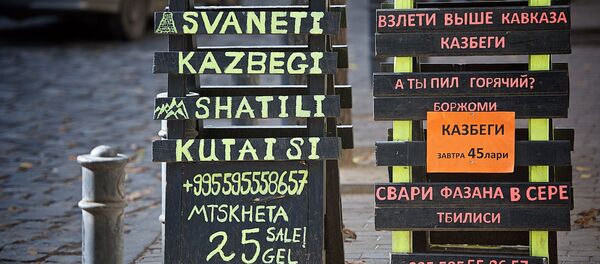 SVANETI
KAZBEGI
SHATILI
KUTAISI
+995595558657
MTSKHETA
25 SALE!
GEL
ВЗЛЕТИ ВЫШЕ КАВКАЗА
КАЗБЕГИ
А ТЫ ПИЛ ГОРЯЧИЙ?
БОРЖОМИ
КАЗБЕГИ
ЗАВТРА 45лари
СВАРИ ФАЗАНА В СЕРЕ
ТБИЛИСИ